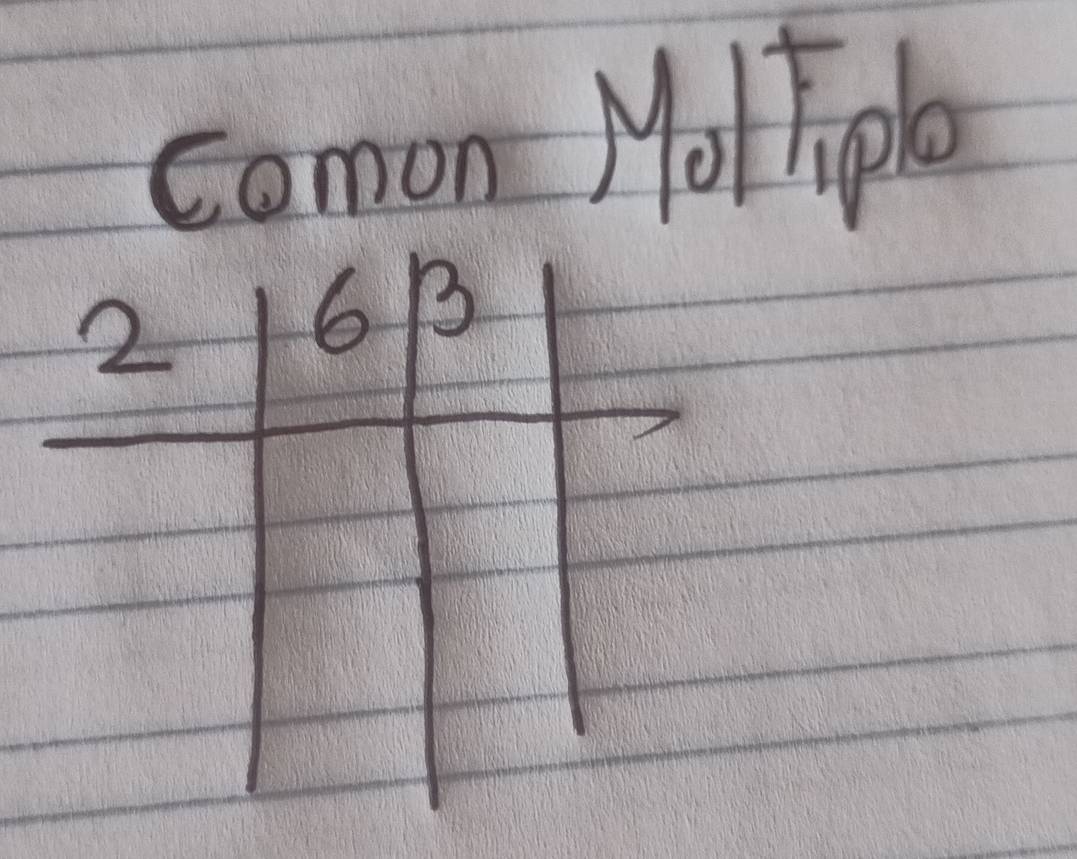 Comon Moltiplo
2 6 3